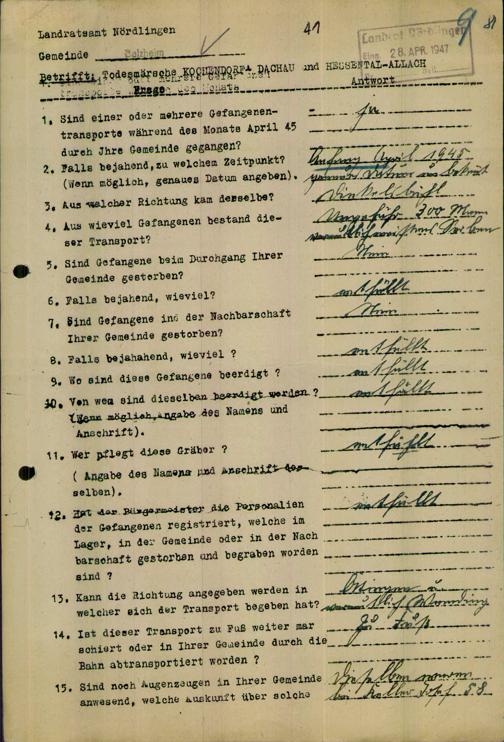 Landratsamt Nördlingen
41
9
Landrat Nördlingen
Eing. 28. APR. 1947
Gemeinde Belzheim
Betrifft: Todesmärsche KOCHENDORF DACHAU und HESSENTAL-ALLACH
Frage Antwort
1. Sind einer oder mehrere Gefangenen- ja
transporte während des Monats April 45
durch Jhre Gemeinde gegangen?
2. Falls bejahend, zu welchem Zeitpunkt? Anfang April 1945
(Wenn möglich, genaues Datum angeben).
3. Aus welcher Richtung kam derselbe? Dinkelsbühl
4. Aus wieviel Gefangenen bestand die- Ungefähr 300 Mann
ser Transport?
5. Sind Gefangene beim Durchgang Ihrer
Gemeinde gestorben?
6. Falls bejahend, wieviel? entfällt
7. Sind Gefangene ind der Nachbarschaft
Ihrer Gemeinde gestorben?
8. Falls bejahahend, wieviel ? entfällt
9. Wo sind diese Gefangene beerdigt ? entfällt
10. Von wem sind dieselben beerdigt worden ? entfällt
(Wenn möglich,Angabe des Namens und
Anschrift).
11. Wer pflegt diese Gräber ? entfällt
( Angabe des Namens und Anschrift des-
selben).
12. Hat der Bürgermeister die Personalien entfällt
der Gefangenen registriert, welche im
Lager, in der Gemeinde oder in der Nach
barschaft gestorben und begraben worden
sind ?
13. Kann die Richtung angegeben werden in Öttingen u.
welcher sich der Transport begeben hat?
14. Ist dieser Transport zu Fuß weiter mar Zu Fuß
schiert oder in Ihrer Gemeinde durch die
Bahn abtransportiert worden ?
15. Sind noch Augenzeugen in Ihrer Gemeinde Dieselben waren
anwesend, welche Auskunft über solche bei